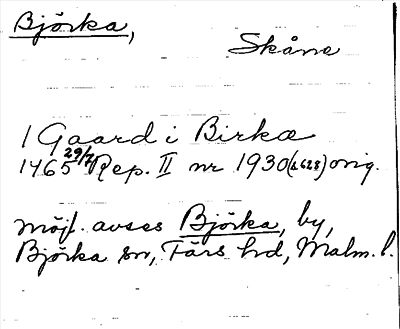 Björka,
Skåne
1 Gaard i Birkæ
1465 29/7 Rep. II nr 1930 (2628) orig.
möjl. avses Björka, by,
Björka sn, Färs hd, Malm. l.